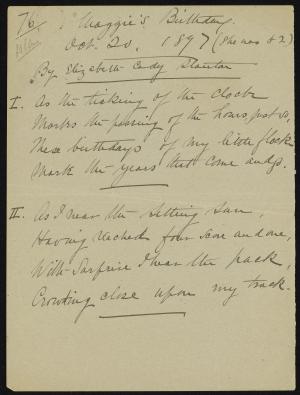 76
Maggie's Birthday.
Oct. 20, 1897 (She was 42)
By Elizabeth Cady Stanton
I. As the ticking of the clock
Marks the passing of the hours, just so,
These birthdays of my little flock
Mark the years that come and go.
II. As I near the setting sun,
Having reached four score and one,
With surprise I hear the pack,
Crowding close upon my track.